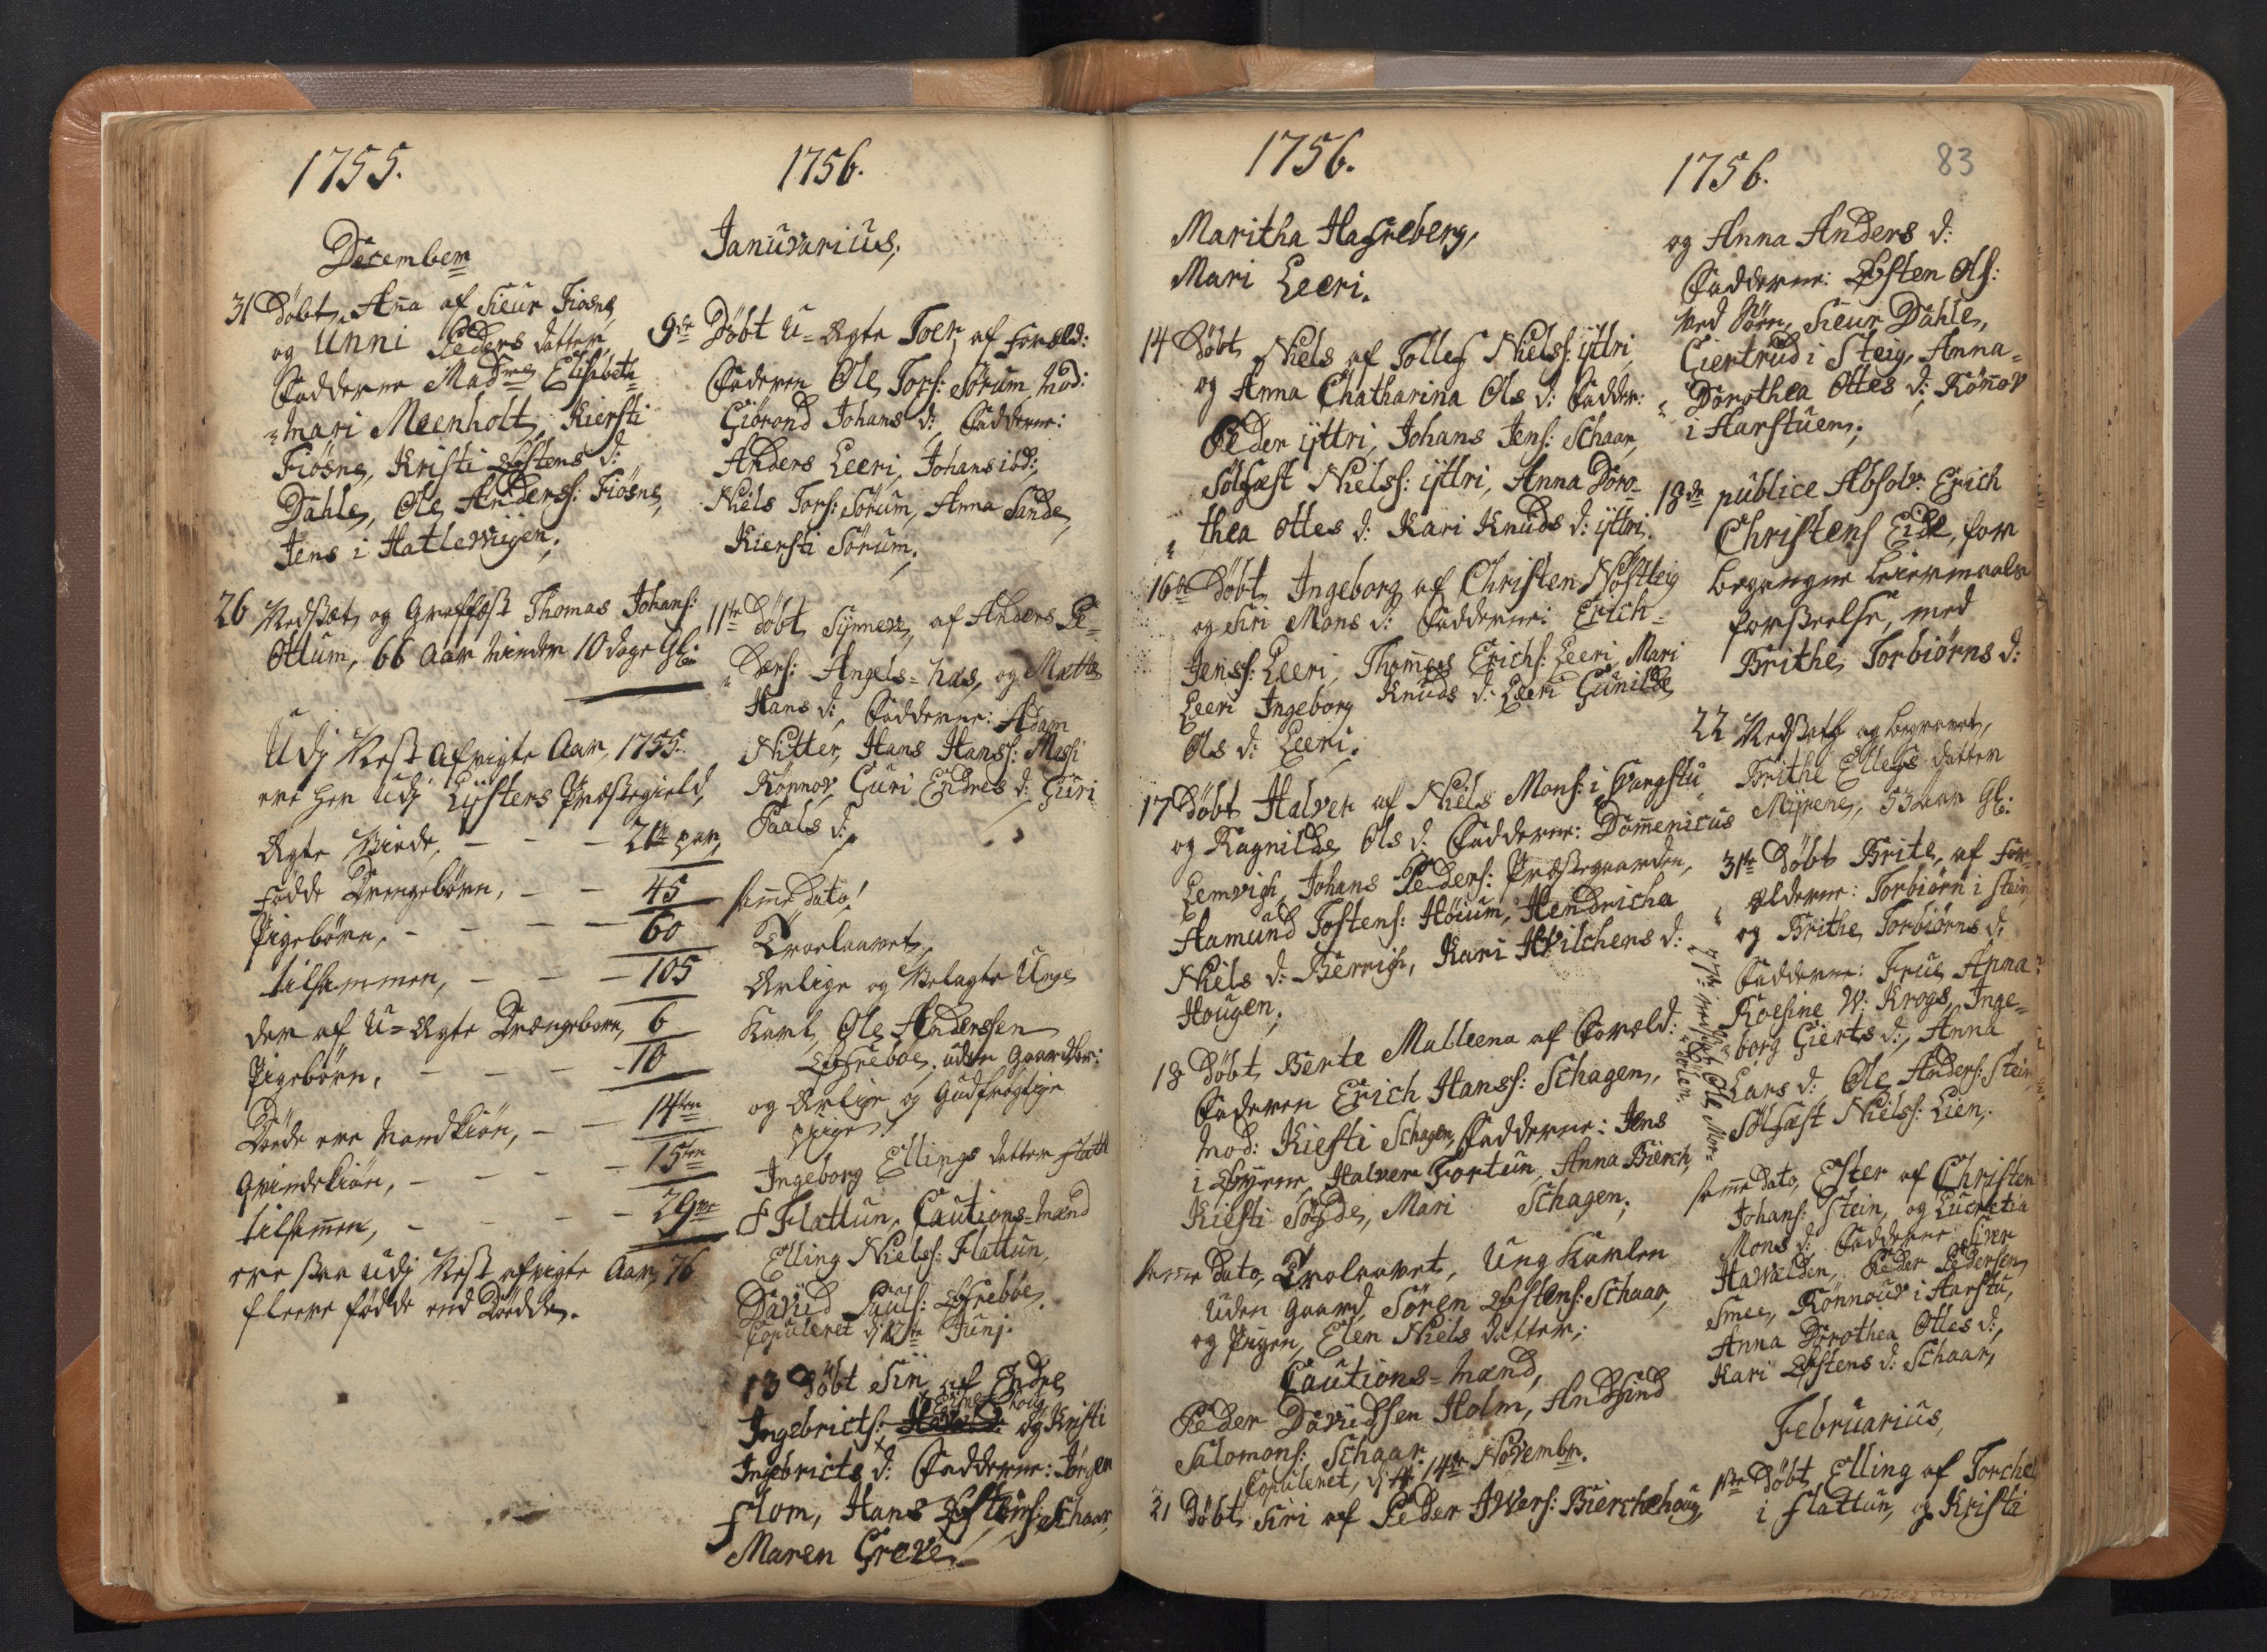 1755.
Decembem
31 Döbt, Anna af Sieur Fiösne,
og Unni Peders datter,
Faddernе Mad^me Elisabeth
Mari Meenholt, Kiersti
Fiösne, Kristi Östens d:
Dahle, Ole Anderss: Fiösne,
Jens i Hatlewiigen;
26 Nedsat, og Graffäst Thomas Johans:
Ottum, 66 Aar minder 10 dage Gl:
Udj Nest afvigte Aar, 1755.
ere her udj Lÿsters Præstegield,
Ægte Viede, - - - 21 par,
Födde Drengebörn, - - 45
Pigebörn, - - - 60
tilsammen, - - - 105
der af U=Ægte Drængebörn, 6
Pigebörn, - - - 10
Döde ere Mandkiön, - - 14ten
Qvindekiön, - - - 15ten
tilsammen, - - - 29ve
ere saa udj Nest afvigte Aar, 76
fleere födde end Dödde.
1756.
Januvarius,
9de Döbt U=Ægte Toer, af Foræld:
Faderen Ole Tors: Sörum, Mod:
Giörond Johans d:, Fadderne:
Anders Leeri, Johans ibd:,
Niels Tors: Sörum, Anna Sande,
Kiersti Sörum;
11te Döbt Sÿnnev, af Anders Pe=
ders: Angels=næs, og Mætte
Hans d:, Fadderne: Adam
Nitter, Hans Hanss:
Rönnov, Guri Endres d: Guri
Paals d:,
Samme Dato!
Troelaavet,
Ærlige og Velagte Unge
Karl, Ole Anderssen
uden Gaard
og Ærlige og Gudfrögtige
Pige!
Ingeborg Ellings datter
Flattun, Cautions=Mænd
Elling Nielss: Flattun,
David Pauls:
Copuleret dj Junj.
13 Döbt Siri af Endre
Ingebricts: og Kristi
Ingebricts d: Fadderne: Jörgen
flom, Hans Östens: Schaar,
Maren Greve,
1756.
Maritha Hagreberg,
Mari Leeri.
14 Döbt, Niels af Tollef Nielss: ÿttri,
og Anna Chatharina Ols d: Fadder:
Peder ÿttri, Johans Jens: Schaar,
Solfæst Nielss: ÿttri, Anna Doro=
thea Ottes d: Kari Knuds d: ÿttri.
16de Döbt, Ingeborg af Christen Nöstteig
og Siri Mons d: Fadderne: Erich=
Jenss: Leeri, Thommes Erichs: Leeri, Mari
Leeri Ingeborg Knuds d: Leeri Gunilde
Ols d: Leeri.
17 Döbt Halver af Niels Mons: i
og Ragnilde Ols d: Fadderne: Dommenicus
Lemvigh, Johans Peders: Præstegaarden,
Aamund Tostens: Höium, Hendricha
Niels d: Berrigh, Kari Hvilchens d:
Hougen;
18 Döbt, Bente Malleena af Foræld:
Faderen Erich Hanss: Schagen,
Mod: Kiesti Schagen, Fadderne: Jens
i Halver Fortun, Anna Bierch,
Kiesti Sogde, Mari Schagen;
Samme Dato, Troelaavet, Ung Karlen
uden Gaard, Sören Östens: Schaar,
og Pigen, Elen Niels datter;
Cautions=Mænd,
Peder Davidssen Holm, Andfind
Salomons: Schaar.
Copuleret, dj 14te Novembr.
21 Döbt, Siri af Peder Iwers: Bierchehoug,
1756. 83
og Anna Anders d:
Fadderne: Östen Ols:
ved Söen, Sieur Dahle,
Giertrud i Steig, Anna=
Dorothea Ottes d: Rönnov
i Harstuen;
18de publice Absolv: Erich
Christens Eide, for
begangne Leiermaals
forseelse, med
Brithe Torbiörns d:
22 Nedsatt og begravet,
Brithe Ellefs datter
Mÿrene, 53 aar Gl:
31te Döbt Brite, af For=
ældrene: Torbiörn i Stein,
og Brithe Torbiörns d:
Fadderne: Frue Anna
Roesine W: Krogs, Inge=
borg Gierts d:, Anna
Lars d: Ole Anders: Stein,
Solfæst Nielss: Lien.
Samme Dato, Ester af Christen
Johans: Stein, og Lucretia
Mons d: Fadderne Siver
Havælden, Peder Pedersen
Smee, Rönnouv i Harstu,
Anna Dorothea Ottes d:,
Kari Östens d: Schaar,
Februarius,
1ste Döbt, Elling af Torchel
i flattun, og Kristi